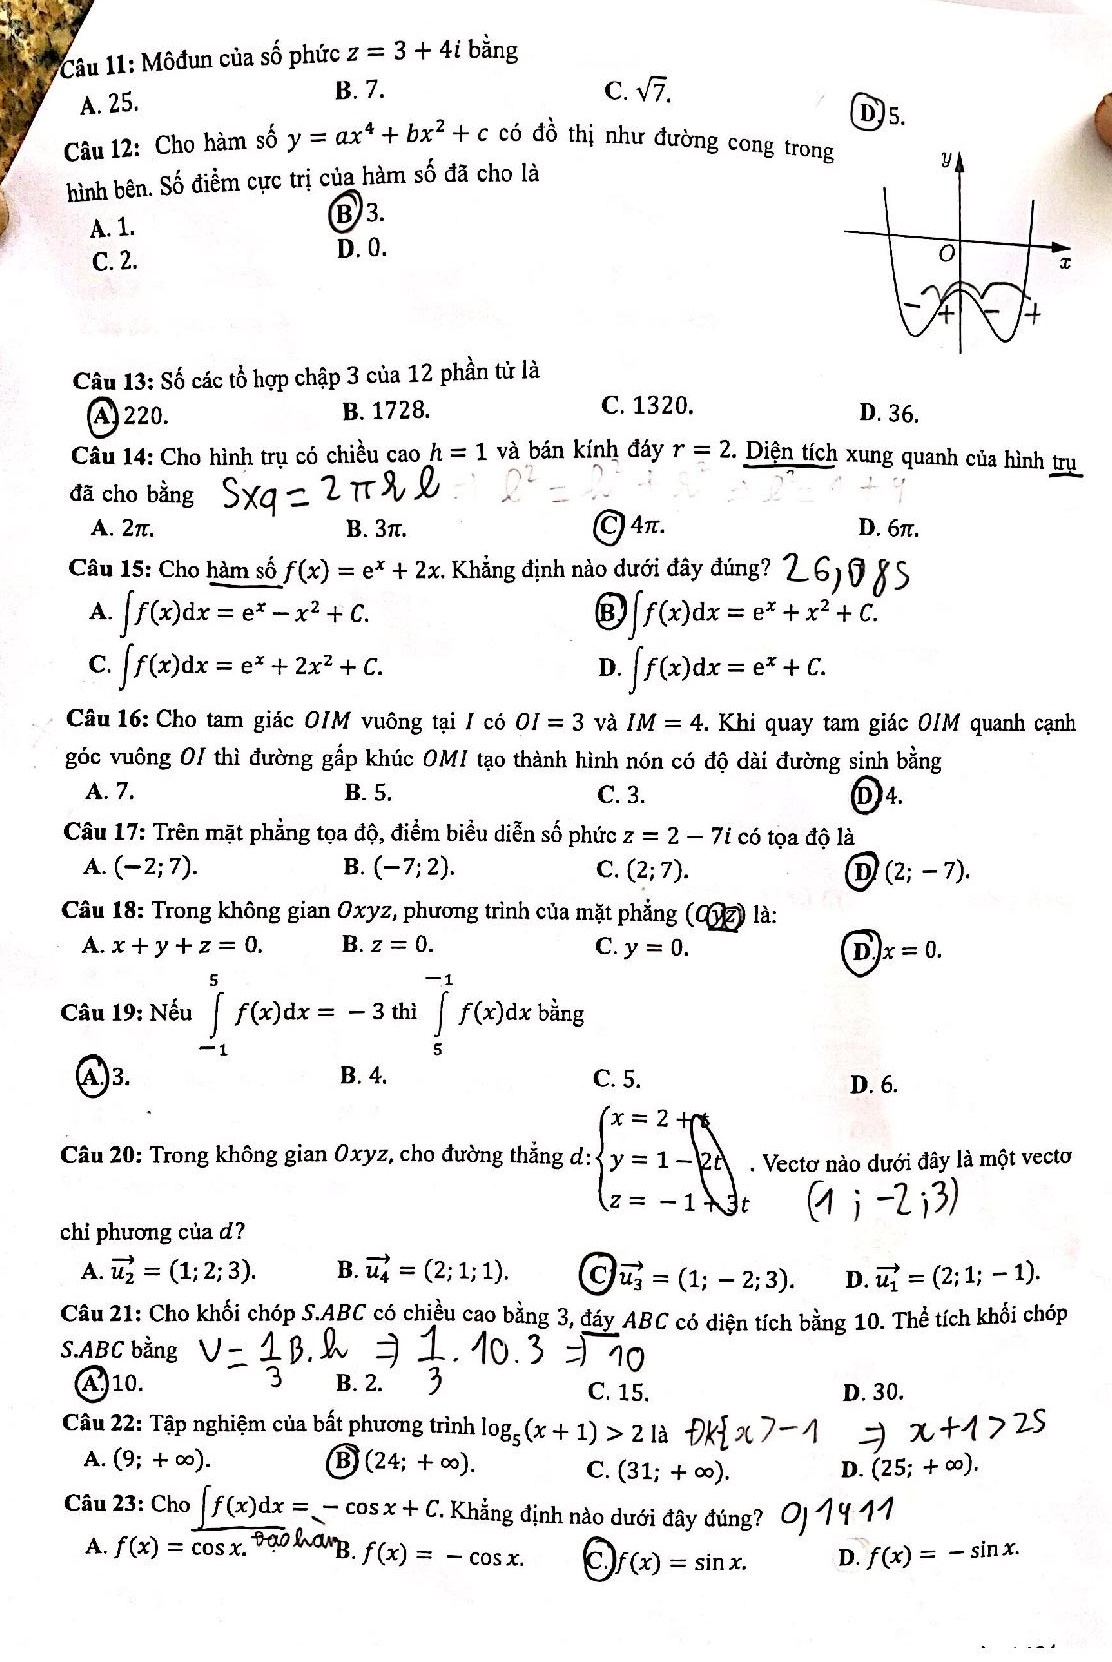 Câu 11: Môđun của số phức z = 3 + 4i bằng
A. 25. B. 7. C. √7. D. 5.
Câu 12: Cho hàm số y = ax⁴ + bx² + c có đồ thị như đường cong trong
hình bên. Số điểm cực trị của hàm số đã cho là
A. 1. B. 3.
C. 2. D. 0.
y
O
x
− + − +
Câu 13: Số các tổ hợp chập 3 của 12 phần tử là
A. 220. B. 1728. C. 1320. D. 36.
Câu 14: Cho hình trụ có chiều cao h = 1 và bán kính đáy r = 2. Diện tích xung quanh của hình trụ
đã cho bằng Sxq = 2πRl
A. 2π. B. 3π. C. 4π. D. 6π.
Câu 15: Cho hàm số f(x) = eˣ + 2x. Khẳng định nào dưới đây đúng? 26,085
A. ∫f(x)dx = eˣ − x² + C. B. ∫f(x)dx = eˣ + x² + C.
C. ∫f(x)dx = eˣ + 2x² + C. D. ∫f(x)dx = eˣ + C.
Câu 16: Cho tam giác OIM vuông tại I có OI = 3 và IM = 4. Khi quay tam giác OIM quanh cạnh
góc vuông OI thì đường gấp khúc OMI tạo thành hình nón có độ dài đường sinh bằng
A. 7. B. 5. C. 3. D. 4.
Câu 17: Trên mặt phẳng tọa độ, điểm biểu diễn số phức z = 2 − 7i có tọa độ là
A. (−2; 7). B. (−7; 2). C. (2; 7). D. (2; − 7).
Câu 18: Trong không gian Oxyz, phương trình của mặt phẳng (Oyz) là:
A. x + y + z = 0. B. z = 0. C. y = 0. D. x = 0.
Câu 19: Nếu ∫₋₁⁵ f(x)dx = − 3 thì ∫₅⁻¹ f(x)dx bằng
A. 3. B. 4. C. 5. D. 6.
x = 2 + t
Câu 20: Trong không gian Oxyz, cho đường thẳng d: { y = 1 − 2t . Vectơ nào dưới đây là một vectơ
z = − 1 + 3t (1 ; −2 ; 3)
chỉ phương của d?
A. u₂⃗ = (1; 2; 3). B. u₄⃗ = (2; 1; 1). C. u₃⃗ = (1; − 2; 3). D. u₁⃗ = (2; 1; − 1).
Câu 21: Cho khối chóp S.ABC có chiều cao bằng 3, đáy ABC có diện tích bằng 10. Thể tích khối chóp
S.ABC bằng V = 1/3 B.h ⇒ 1/3 . 10.3 ⇒ 10
A. 10. B. 2. C. 15. D. 30.
Câu 22: Tập nghiệm của bất phương trình log₅(x + 1) > 2 là Đk{x > −1 ⇒ x+1 > 25
A. (9; + ∞). B. (24; + ∞). C. (31; + ∞). D. (25; + ∞).
Câu 23: Cho ∫f(x)dx = − cos x + C. Khẳng định nào dưới đây đúng? 0,1411
A. f(x) = cos x. Đạo hàm B. f(x) = − cos x. C. f(x) = sin x. D. f(x) = − sin x.